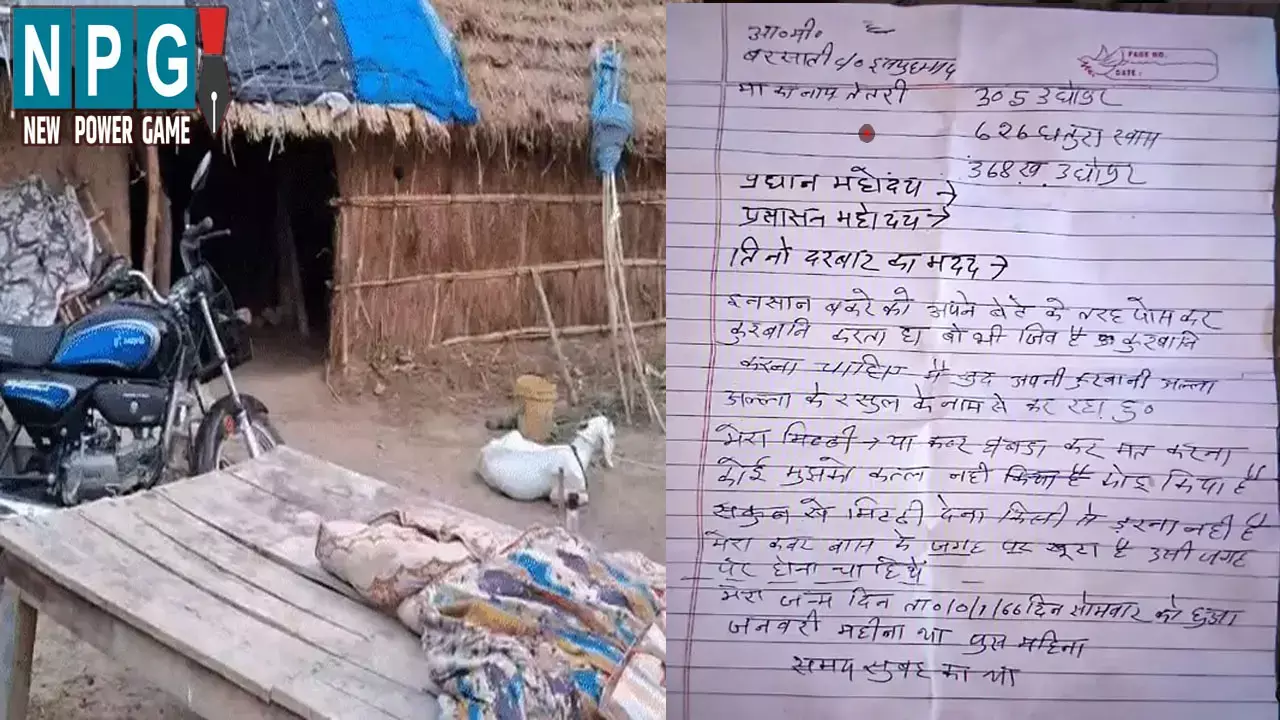 NPG
NEW POWER GAME
PAGE NO.
DATE :
बरसाती
मा का नाम तेतरी
626 धतुरा खाम
368ख
प्रधान महोदय →
प्रसासन महोदय →
तिनो दरबार का मदद →
इनसान बकरे को अपने बेटे के तरह पोस कर
कुरबानि करता है। वो भी जिव है कुरबानि
करना चाहिए मै खुद अपनी कुरबानी अल्ला
अल्ला के रसुल के नाम से कर रहा हु०
मेरा मिटटी → या कबर घबडा कर मत करना
कोई मुझको कत्ल नही किया है
सकुन से मिटटी देना किसी से डरना नही है
मेरा कबर बास के जगह पर खूटा है उसी जगह
पर होना चाहिये
मेरा जन्म दिन ता० /0/1/66 दिन सोमवार को हुआ
जनवरी महीना था पुस महिना
समय सुबह का था